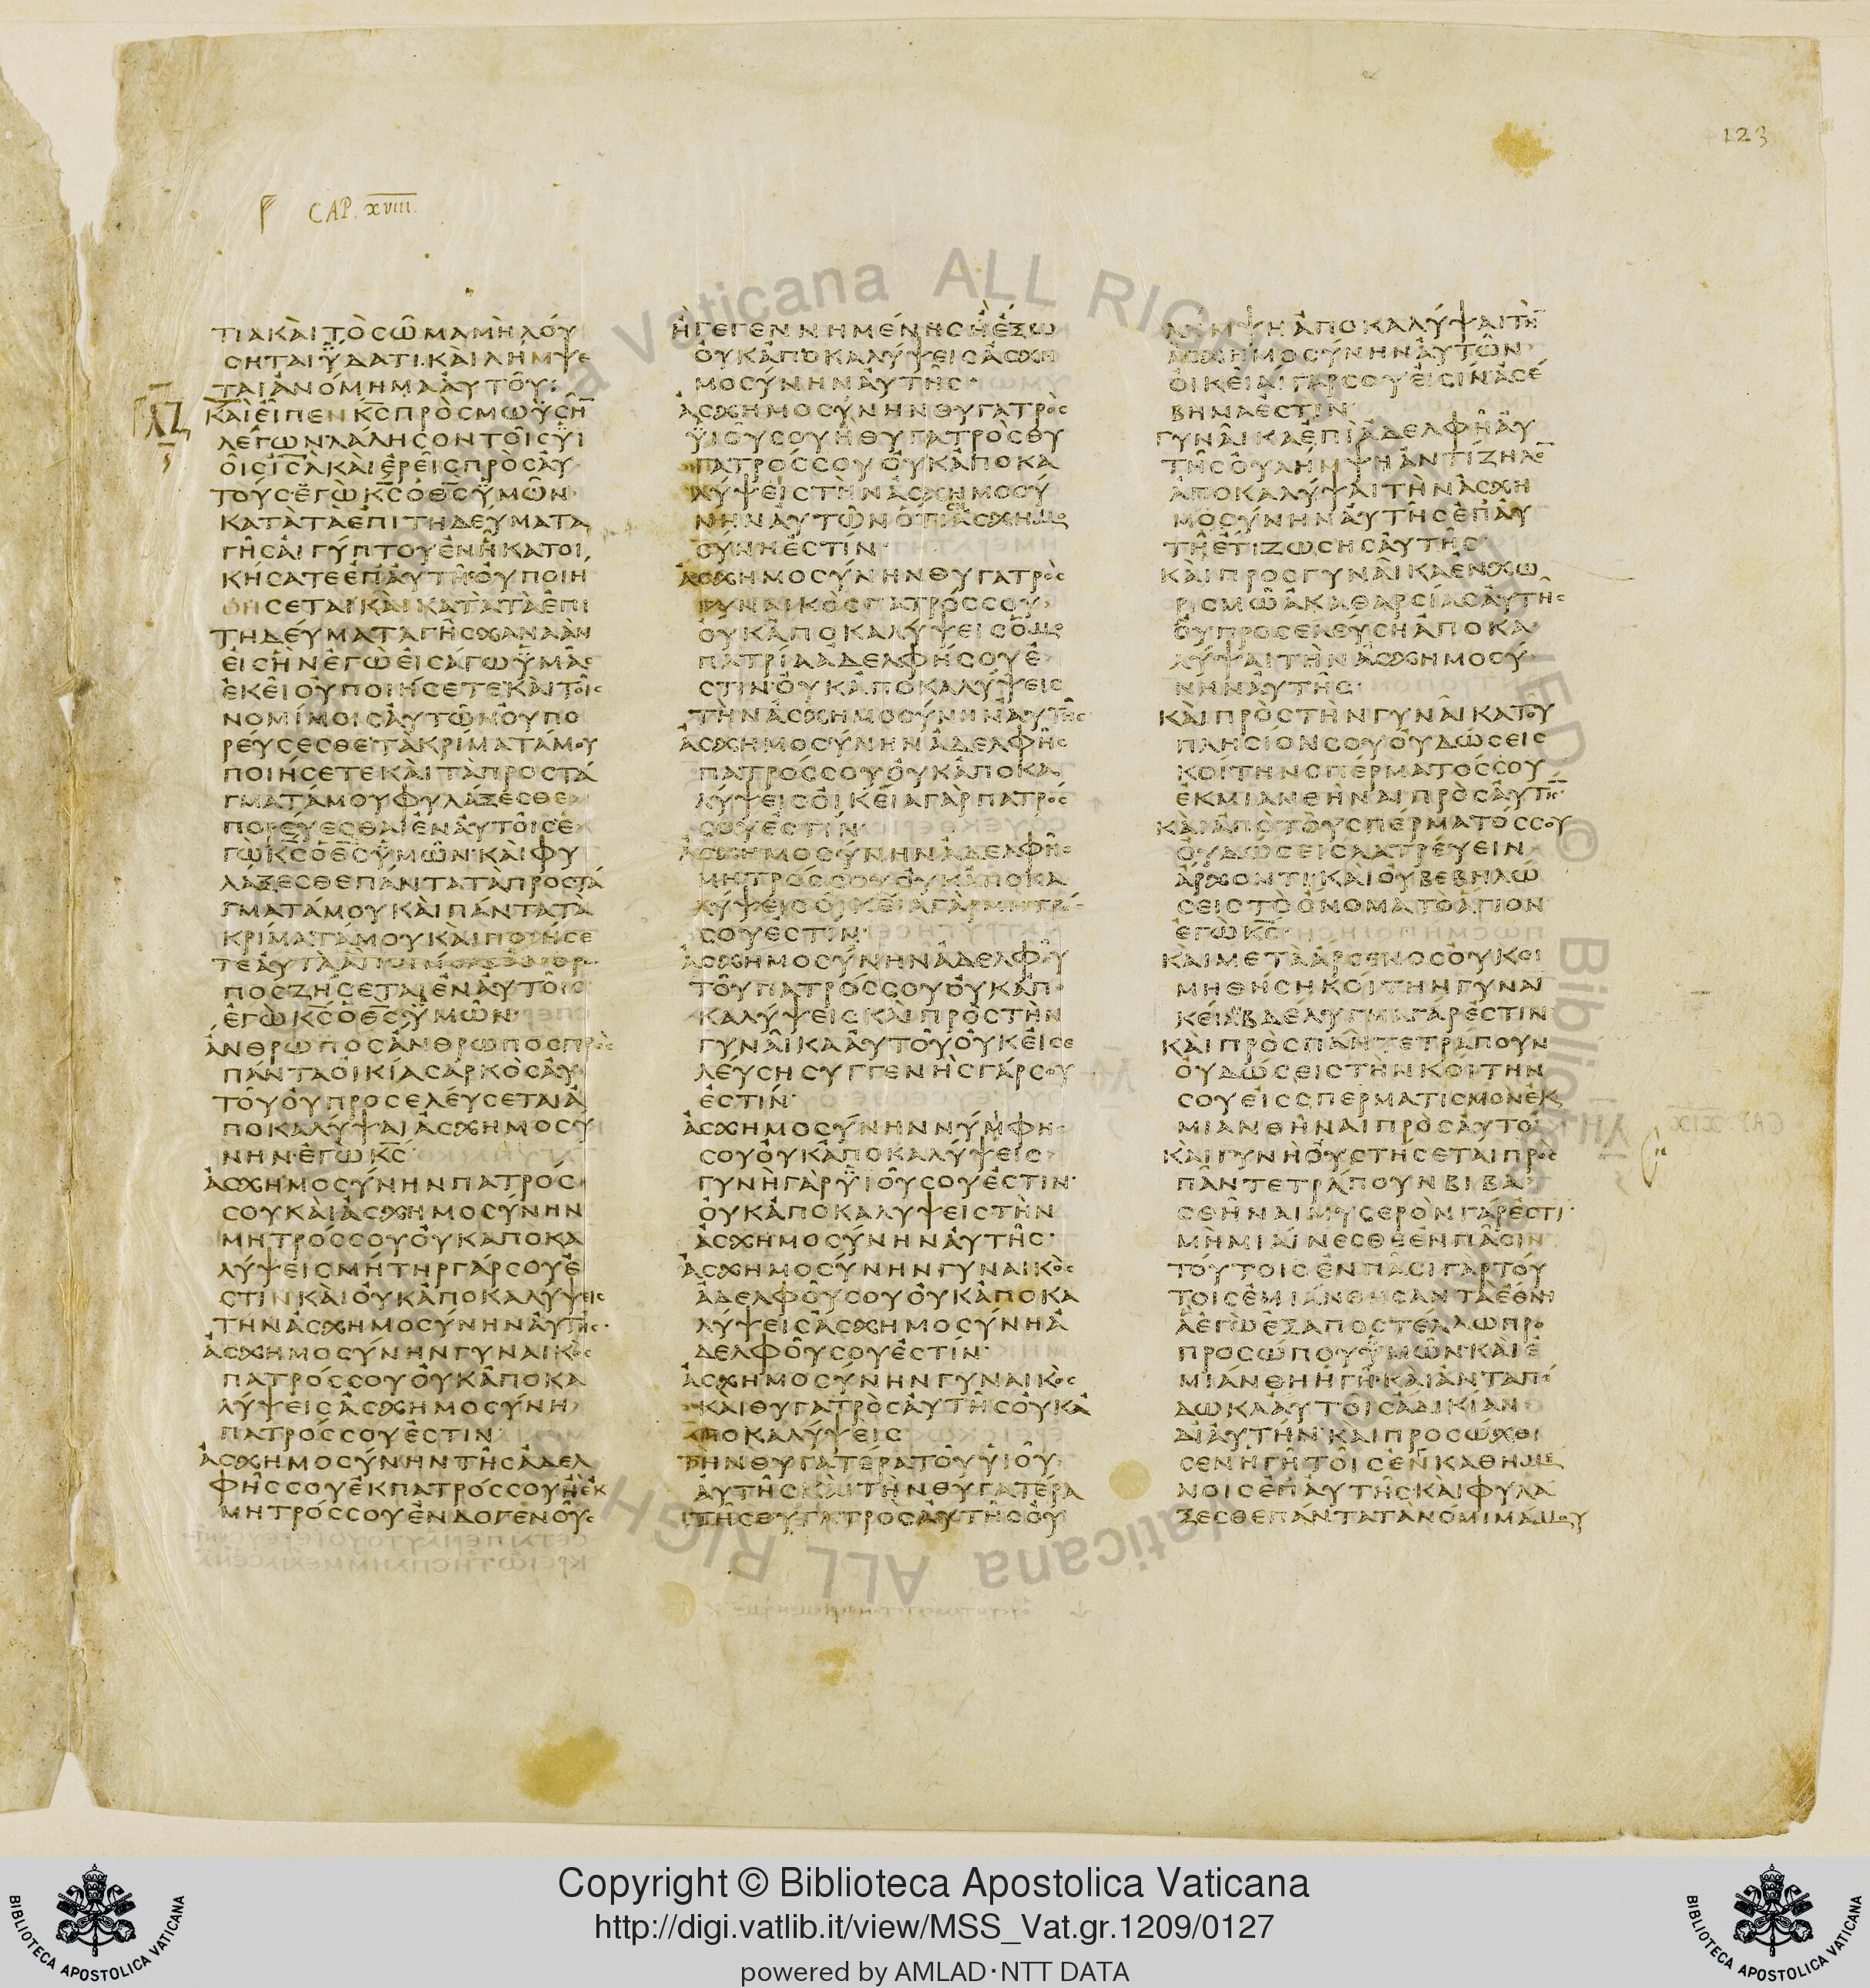 123
CAP. xviii.
ΤΙΑΚΑΙΤΟϹΩΜΑΜΗΛΟΥ
ϹΗΤΑΙΫΔΑΤΙ·ΚΑΙΛΗΜΨΕ
ΤΑΙΑΝΟΜΗΜΑΑΥΤΟΥ·
ΚΑΙΕΙΠΕΝΚ̅Ϲ̅ΠΡΟϹΜΩΥϹΗ̅
ΛΕΓΩΝΛΑΛΗϹΟΝΤΟΙϹΫΙ
ΟΙϹΙ̅Ϲ̅Λ̅ΚΑΙΕΡΕΙϹΠΡΟϹΑΥ
ΤΟΥϹ·ΕΓΩΚ̅Ϲ̅ΟΘ̅Ϲ̅ΫΜΩΝ·
ΚΑΤΑΤΑΕΠΙΤΗΔΕΥΜΑΤΑ
ΓΗϹΑΙΓΥΠΤΟΥΕΝΗΚΑΤΟΙ
ΚΗϹΑΤΕΕΠΑΥΤΗ·ΟΥΠΟΙΗ
ϹΕΤΑΙΚΑΙΚΑΤΑΤΑΕΠΙ
ΤΗΔΕΥΜΑΤΑΓΗϹΧΑΝΑΑΝ
ΕΙϹΗΝΕΓΩΕΙϹΑΓΩΫΜΑϹ
ΕΚΕΙΟΥΠΟΙΗϹΕΤΕ·ΚΑΙΤΟΙϹ
ΝΟΜΙΜΟΙϹΑΥΤΩΝΟΥΠΟ
ΡΕΥϹΕϹΘΕ·ΤΑΚΡΙΜΑΤΑΜΟΥ
ΠΟΙΗϹΕΤΕΚΑΙΤΑΠΡΟϹΤΑ
ΓΜΑΤΑΜΟΥΦΥΛΑΞΕϹΘΕ
ΠΟΡΕΥΕϹΘΑΙΕΝΑΥΤΟΙϹ·Ε
ΓΩΚ̅Ϲ̅ΟΘ̅Ϲ̅ΫΜΩΝ·ΚΑΙΦΥ
ΛΑΞΕϹΘΕΠΑΝΤΑΤΑΠΡΟϹΤΑ
ΓΜΑΤΑΜΟΥΚΑΙΠΑΝΤΑΤΑ
ΚΡΙΜΑΤΑΜΟΥΚΑΙΠΟΙΗϹΕ
ΤΕΑΥΤΑ
ΠΟϹΖΗϹΕΤΑΙΕΝΑΥΤΟΙϹ·
ΕΓΩΚ̅Ϲ̅ΟΘ̅Ϲ̅ΫΜΩΝ·
ΑΝΘΡΩΠΟϹΑΝΘΡΩΠΟϹΠΡΟϹ
ΠΑΝΤΑΟΙΚΙΑϹΑΡΚΟϹΑΥ
ΤΟΥΟΥΠΡΟϹΕΛΕΥϹΕΤΑΙΑ
ΠΟΚΑΛΥΨΑΙΑϹΧΗΜΟϹΥ
ΝΗΝ·ΕΓΩΚ̅Ϲ̅
ΑϹΧΗΜΟϹΥΝΗΝΠΑΤΡΟϹ
ϹΟΥΚΑΙΑϹΧΗΜΟϹΥΝΗΝ
ΜΗΤΡΟϹϹΟΥΟΥΚΑΠΟΚΑ
ΛΥΨΕΙϹΜΗΤΗΡΓΑΡϹΟΥΕ
ϹΤΙΝΚΑΙΟΥΚΑΠΟΚΑΛΥΨΕΙϹ
ΤΗΝΑϹΧΗΜΟϹΥΝΗΝΑΥΤΗϹ·
ΑϹΧΗΜΟϹΥΝΗΝΓΥΝΑΙΚΟϹ
ΠΑΤΡΟϹϹΟΥΟΥΚΑΠΟΚΑ
ΛΥΨΕΙϹΑϹΧΗΜΟϹΥΝΗ
ΠΑΤΡΟϹϹΟΥΕϹΤΙΝ
ΑϹΧΗΜΟϹΥΝΗΝΤΗϹΑΔΕΛ
ΦΗϹϹΟΥΕΚΠΑΤΡΟϹϹΟΥΗΕΚ
ΜΗΤΡΟϹϹΟΥΕΝΔΟΓΕΝΟΥϹ
ΗΓΕΓΕΝΝΗΜΕΝΗϹΗΕΞΩ
ΟΥΚΑΠΟΚΑΛΥΨΕΙϹΑϹΧΗ
ΜΟϹΥΝΗΝΑΥΤΗϹ·
ΑϹΧΗΜΟϹΥΝΗΝΘΥΓΑΤΡΟϹ
ΫΙΟΥϹΟΥΗΘΥΓΑΤΡΟϹΘΥ
ΓΑΤΡΟϹϹΟΥΟΥΚΑΠΟΚΑ
ΛΥΨΕΙϹΤΗΝΑϹΧΗΜΟϹΥ
ΝΗΝΑΥΤΩΝΟΤΙΑϹΧΗΜΟ
ϹΥΝΗΕϹΤΙΝ·
ΑϹΧΗΜΟϹΥΝΗΝΘΥΓΑΤΡΟϹ
ΓΥΝΑΙΚΟϹΠΑΤΡΟϹϹΟΥ
ΟΥΚΑΠΟΚΑΛΥΨΕΙϹΟΜΟ
ΠΑΤΡΙΑΑΔΕΛΦΗϹΟΥΕ
ϹΤΙΝ·ΟΥΚΑΠΟΚΑΛΥΨΕΙϹ
ΤΗΝΑϹΧΗΜΟϹΥΝΗΝΑΥΤΗϹ
ΑϹΧΗΜΟϹΥΝΗΝΑΔΕΛΦΗϹ
ΠΑΤΡΟϹϹΟΥΟΥΚΑΠΟΚΑ
ΛΥΨΕΙϹΟΙΚΕΙΑΓΑΡΠΑΤΡΟϹ
ϹΟΥΕϹΤΙΝ·
ΑϹΧΗΜΟϹΥΝΗΝΑΔΕΛΦΗϹ
ΜΗΤΡΟϹϹΟΥΟΥΚΑΠΟΚΑ
ΛΥΨΕΙϹΟΙΚΕΙΑΓΑΡΜΗΤΡΟϹ
ϹΟΥΕϹΤΙΝ·
ΑϹΧΗΜΟϹΥΝΗΝΑΔΕΛΦΟΥ
ΤΟΥΠΑΤΡΟϹϹΟΥΟΥΚΑΠΟ
ΚΑΛΥΨΕΙϹΚΑΙΠΡΟϹΤΗΝ
ΓΥΝΑΙΚΑΑΥΤΟΥΟΥΚΕΙϹΕ
ΛΕΥϹΗϹΥΓΓΕΝΗϹΓΑΡϹΟΥ
ΕϹΤΙΝ·
ΑϹΧΗΜΟϹΥΝΗΝΝΥΜΦΗϹ
ϹΟΥΟΥΚΑΠΟΚΑΛΥΨΕΙϹ
ΓΥΝΗΓΑΡΫΙΟΥϹΟΥΕϹΤΙΝ·
ΟΥΚΑΠΟΚΑΛΥΨΕΙϹΤΗΝ
ΑϹΧΗΜΟϹΥΝΗΝΑΥΤΗϹ·
ΑϹΧΗΜΟϹΥΝΗΝΓΥΝΑΙΚΟϹ
ΑΔΕΛΦΟΥϹΟΥΟΥΚΑΠΟΚΑ
ΛΥΨΕΙϹΑϹΧΗΜΟϹΥΝΗΑ
ΔΕΛΦΟΥϹΟΥΕϹΤΙΝ·
ΑϹΧΗΜΟϹΥΝΗΝΓΥΝΑΙΚΟϹ
ΚΑΙΘΥΓΑΤΡΟϹΑΥΤΗϹΟΥΚΑ
ΠΟΚΑΛΥΨΕΙϹ
ΤΗΝΘΥΓΑΤΕΡΑΤΟΥΥΙΟΥ
ΑΥΤΗϹΚΑΙΤΗΝΘΥΓΑΤΕΡΑ
ΤΗϹΘΥΓΑΤΡΟϹΑΥΤΗϹΟΥ
ΛΗΜΨΗΑΠΟΚΑΛΥΨΑΙΤΗ̅
ΑϹΧΗΜΟϹΥΝΗΝΑΥΤΩΝ
ΟΙΚΕΙΑΙΓΑΡϹΟΥΕΙϹΙΝ·ΑϹΕ
ΒΗΜΑΕϹΤΙΝ·
ΓΥΝΑΙΚΑΕΠΙΑΔΕΛΦΗΑΥ
ΤΗϹΟΥΛΗΜΨΗΑΝΤΙΖΗΛΟ̅
ΑΠΟΚΑΛΥΨΑΙΤΗΝΑϹΧΗ
ΜΟϹΥΝΗΝΑΥΤΗϹΕΠΑΥ
ΤΗΕΤΙΖΩϹΗϹΑΥΤΗϹ·
ΚΑΙΠΡΟϹΓΥΝΑΙΚΑΕΝΧΩ
ΡΙϹΜΩΑΚΑΘΑΡϹΙΑϹΑΥΤΗϹ
ΟΥΠΡΟϹΕΛΕΥϹΗΑΠΟΚΑ
ΛΥΨΑΙΤΗΝΑϹΧΗΜΟϹΥ
ΝΗΝΑΥΤΗϹ·
ΚΑΙΠΡΟϹΤΗΝΓΥΝΑΙΚΑΤΟΥ
ΠΛΗϹΙΟΝϹΟΥΟΥΔΩϹΕΙϹ
ΚΟΙΤΗΝϹΠΕΡΜΑΤΟϹϹΟΥ
ΕΚΜΙΑΝΘΗΝΑΙΠΡΟϹΑΥΤΗ̅
ΚΑΙΑΠΟΤΟΥϹΠΕΡΜΑΤΟϹϹΟΥ
ΟΥΔΩϹΕΙϹΛΑΤΡΕΥΕΙΝ
ΑΡΧΟΝΤΙ·ΚΑΙΟΥΒΕΒΗΛΩ
ϹΕΙϹΤΟΟΝΟΜΑΤΟΑΓΙΟΝ
ΕΓΩΚ̅Ϲ̅·
ΚΑΙΜΕΤΑΑΡϹΕΝΟϹΟΥΚΟΙ
ΜΗΘΗϹΗΚΟΙΤΗΝΓΥΝΑΙ
ΚΕΙΑ·ΒΔΕΛΥΓΜΑΓΑΡΕϹΤΙΝ
ΚΑΙΠΡΟϹΠΑΝΤΕΤΡΑΠΟΥΝ
ΟΥΔΩϹΕΙϹΤΗΝΚΟΙΤΗΝ
ϹΟΥΕΙϹϹΠΕΡΜΑΤΙϹΜΟΝΕΚ
ΜΙΑΝΘΗΝΑΙΠΡΟϹΑΥΤΟ·
ΚΑΙΓΥΝΗΟΥϹΤΗϹΕΤΑΙΠΡΟϹ
ΠΑΝΤΕΤΡΑΠΟΥΝΒΙΒΑ
ϹΘΗΝΑΙΜΥϹΕΡΟΝΓΑΡΕϹΤΙ·
ΜΗΜΙΑΙΝΕϹΘΕΕΝΠΑϹΙΝ
ΤΟΥΤΟΙϹΕΝΠΑϹΙΓΑΡΤΟΥ
ΤΟΙϹΕΜΙΑΝΘΗϹΑΝΤΑΕΘΝΗ
ΑΕΓΩΕΞΑΠΟϹΤΕΛΛΩΠΡΟ
ΠΡΟϹΩΠΟΥΫΜΩΝ·ΚΑΙΕ
ΜΙΑΝΘΗΗΓΗ·ΚΑΙΑΝΤΑΠΕ
ΔΩΚΑΑΥΤΟΙϹΑΔΙΚΙΑΝ
ΔΙΑΥΤΗΝ·ΚΑΙΠΡΟϹΩΧΘΙ
ϹΕΝΗΓΗΤΟΙϹΕΝΚΑΘΗΜΕ
ΝΟΙϹΕΠΑΥΤΗϹ·ΚΑΙΦΥΛΑ
ΞΕϹΘΕΠΑΝΤΑΤΑΝΟΜΙΜΑΜΟΥ
Copyright © Biblioteca Apostolica Vaticana
http://digi.vatlib.it/view/MSS_Vat.gr.1209/0127
powered by AMLAD·NTT DATA
BIBLIOTECA APOSTOLICA VATICANA
BIBLIOTECA APOSTOLICA VATICANA